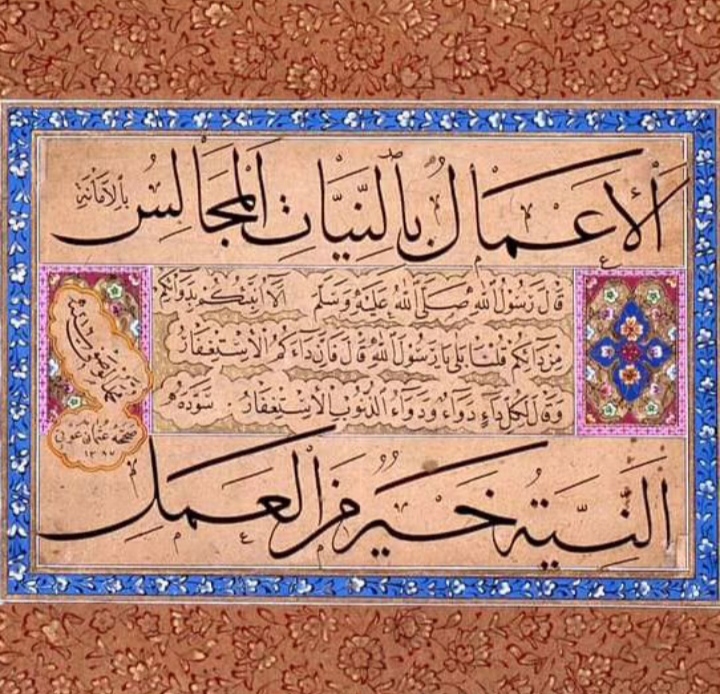 الأعمال بالنيات المجالس بالأمانة
قال رسول الله صلى الله عليه وسلم ألا أنبئكم بدوائكم
من دائكم قلنا بلى يا رسول الله قال فإن داءكم الاستغفار
وقال لكل داء دواء ودواء الذنوب الاستغفار سوده
محمد الوصفي
صححه عثمان عوني
١٢٩٧
النية خير من العمل